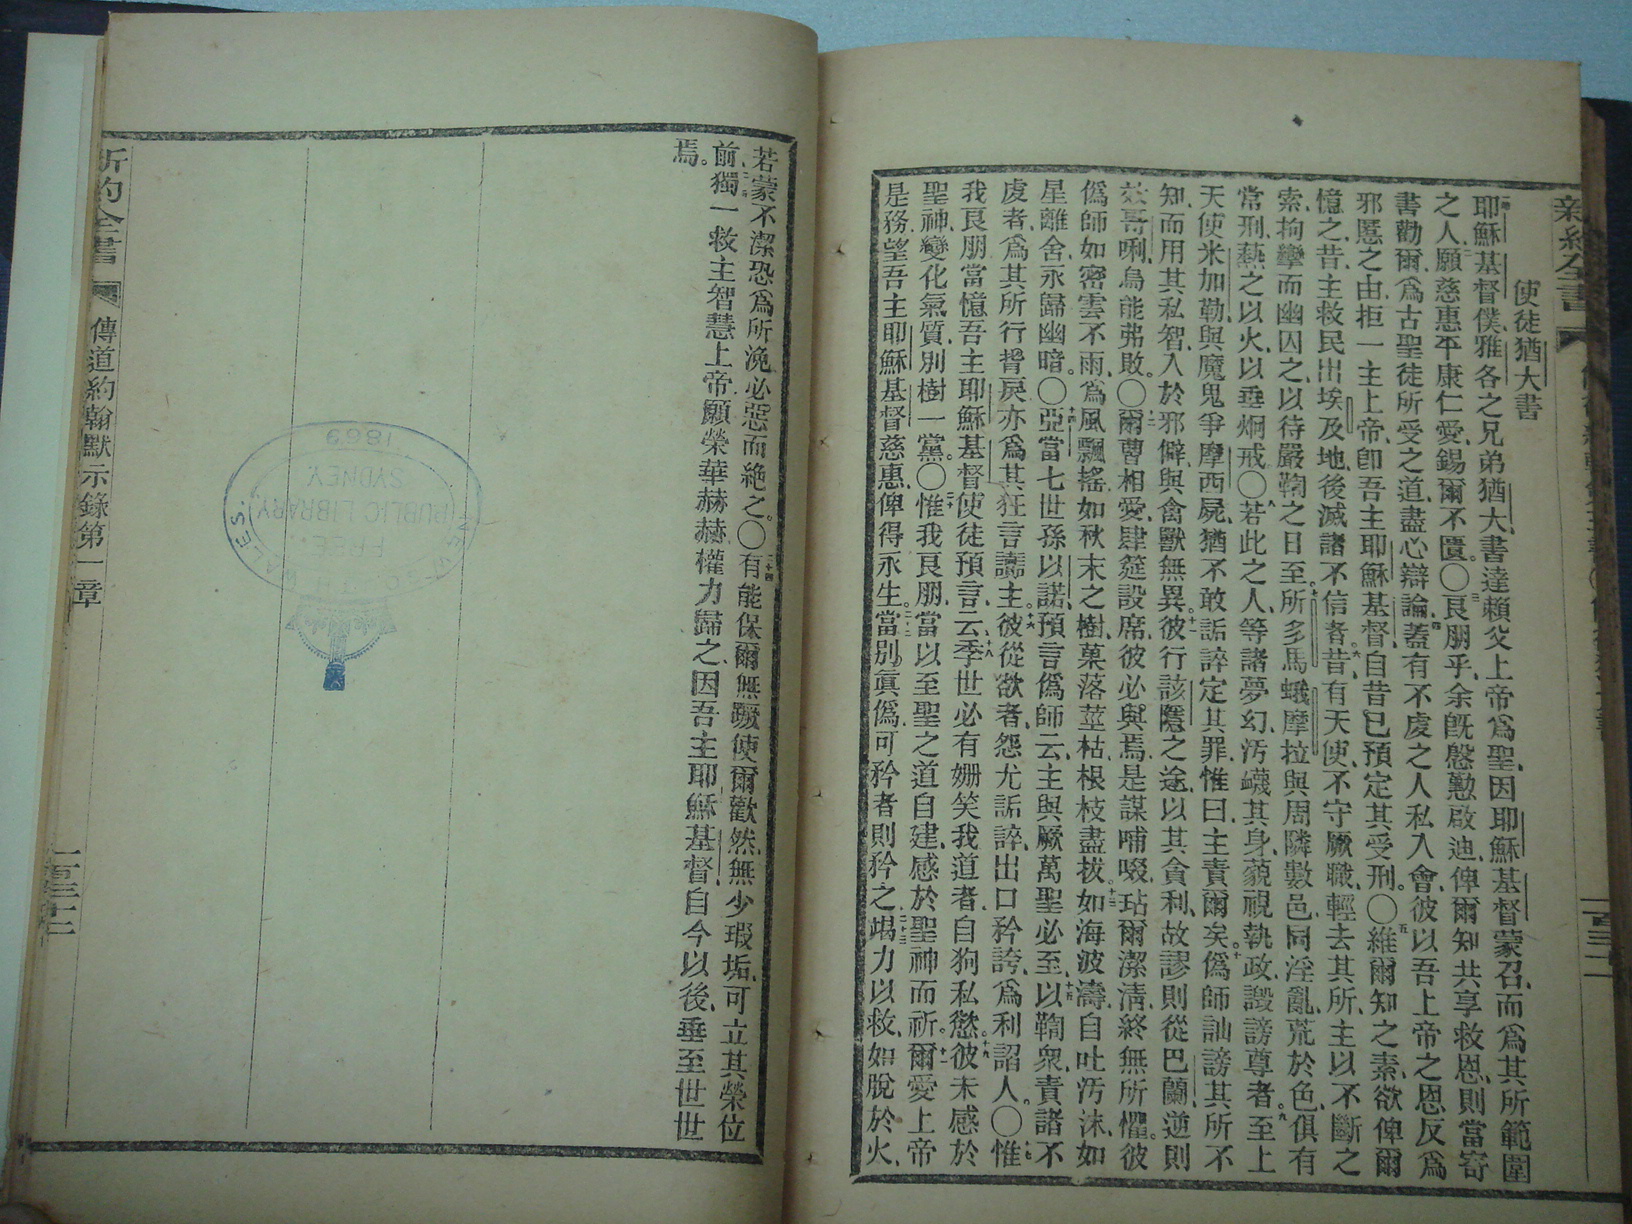 新約全書
使徒猶大書
耶穌基督僕、雅各之兄弟猶大、書達賴父上帝爲聖、因耶穌基督蒙召、而爲其所範圍
之人、願慈惠平康仁愛、錫爾不匱。〇良朋乎、余旣慇懃啟迪、俾爾知共享救恩、則當寄
書勸爾、爲古聖徒所受之道、盡心辯論、蓋有不虔之人私入會、彼以吾上帝之恩、反爲
邪慝之由、拒一主上帝、卽吾主耶穌基督、自昔已預定其受刑。〇維爾知之素、欲俾爾
憶之、昔主救民出埃及地、後滅諸不信者。昔有天使、不守厥職、輕去其所、主以不斷之
索、拘攣而幽囚之、以待嚴鞫之日至。所多馬蛾摩拉、與周隣數邑、同淫亂、荒於色、俱有
常刑、爇之以火、以垂炯戒、〇若此之人、等諸夢幻、汚衊其身、藐視執政、譭謗尊者。至上
天使米加勒、與魔鬼爭摩西屍、猶不敢詬誶定其罪、惟曰主責爾矣。僞師訕謗其所不
知、而用其私智、入於邪僻、與禽獸無異。彼行該隱之途、以其貪利、故謬則從巴蘭、逆則
效哥喇、烏能弗敗。〇爾曹相愛、肆筵設席、彼必與焉、是謀哺啜、玷爾潔淸、終無所懼。彼
僞師如密雲不雨、爲風飄搖、如秋末之樹、菓落莖枯、根枝盡拔。如海波濤、自吐汚沫、如
星離舍、永歸幽暗。〇亞當七世孫以諾、預言僞師云、主與厥萬聖必至、以鞫衆、責諸不
虔者、爲其所行撘戾、亦爲其狂言譸主。彼從欲者、怨尤詬誶、出口矜誇、爲利諂人。〇惟
我良朋、當憶吾主耶穌基督使徒預言、云季世必有姍笑我道者、自狥私慾。彼未感於
聖神、變化氣質、別樹一黨。〇惟我良朋、當以至聖之道自建、感於聖神而祈。爾愛上帝
是務、望吾主耶穌基督慈惠、俾得永生。當別眞僞、可矜者則矜之、竭力以救、如脫於火、
一百三十二
若蒙不潔、恐爲所浼、必惡而絶之。〇有能保爾無蹶、使爾歡然、無少瑕垢、可立其榮位
前、獨一救主智慧上帝、願榮華赫赫、權力歸之、因吾主耶穌基督、自今以後、垂至世世
焉。
新約全書
傳道約翰默示錄第一章
一百三十二
FREE
PUBLIC LIBRARY
SYDNEY
1869